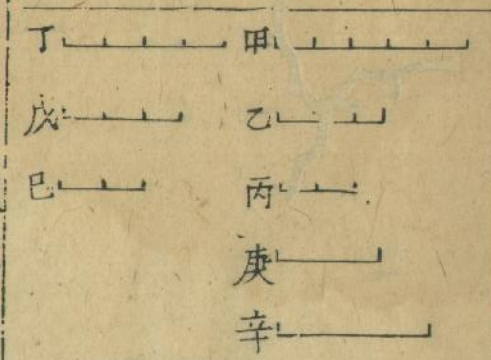 甲
乙
丙
庚
辛
丁
戊
巳